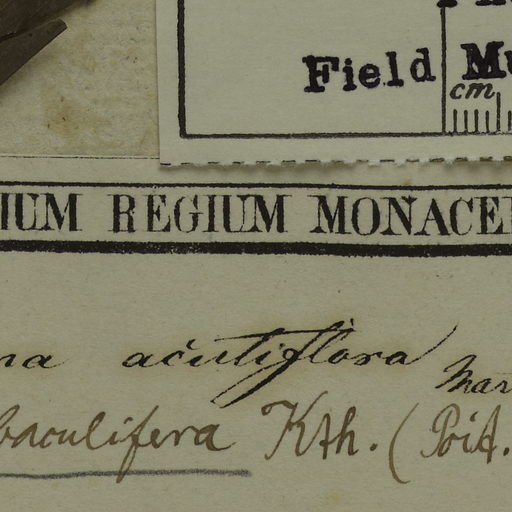 Field Mu
cm
IUM REGIUM MONACE
na acutiflora Mar
baculifera Kth. (Poit.